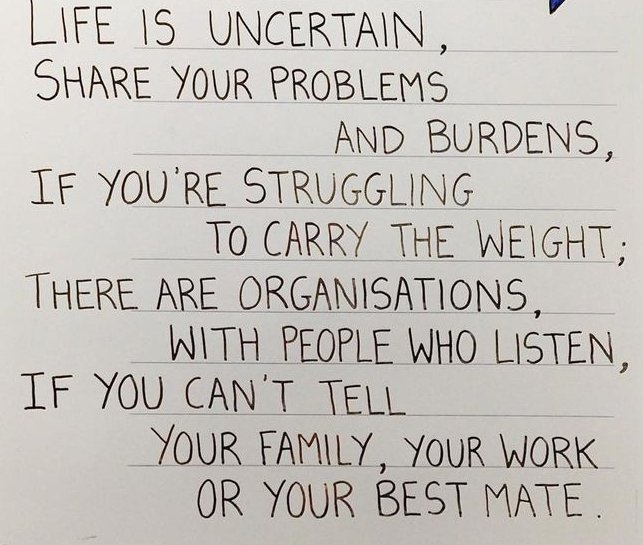 LIFE IS UNCERTAIN,
SHARE YOUR PROBLEMS
AND BURDENS,
IF YOU'RE STRUGGLING
TO CARRY THE WEIGHT;
THERE ARE ORGANISATIONS,
WITH PEOPLE WHO LISTEN,
IF YOU CAN'T TELL
YOUR FAMILY, YOUR WORK
OR YOUR BEST MATE.